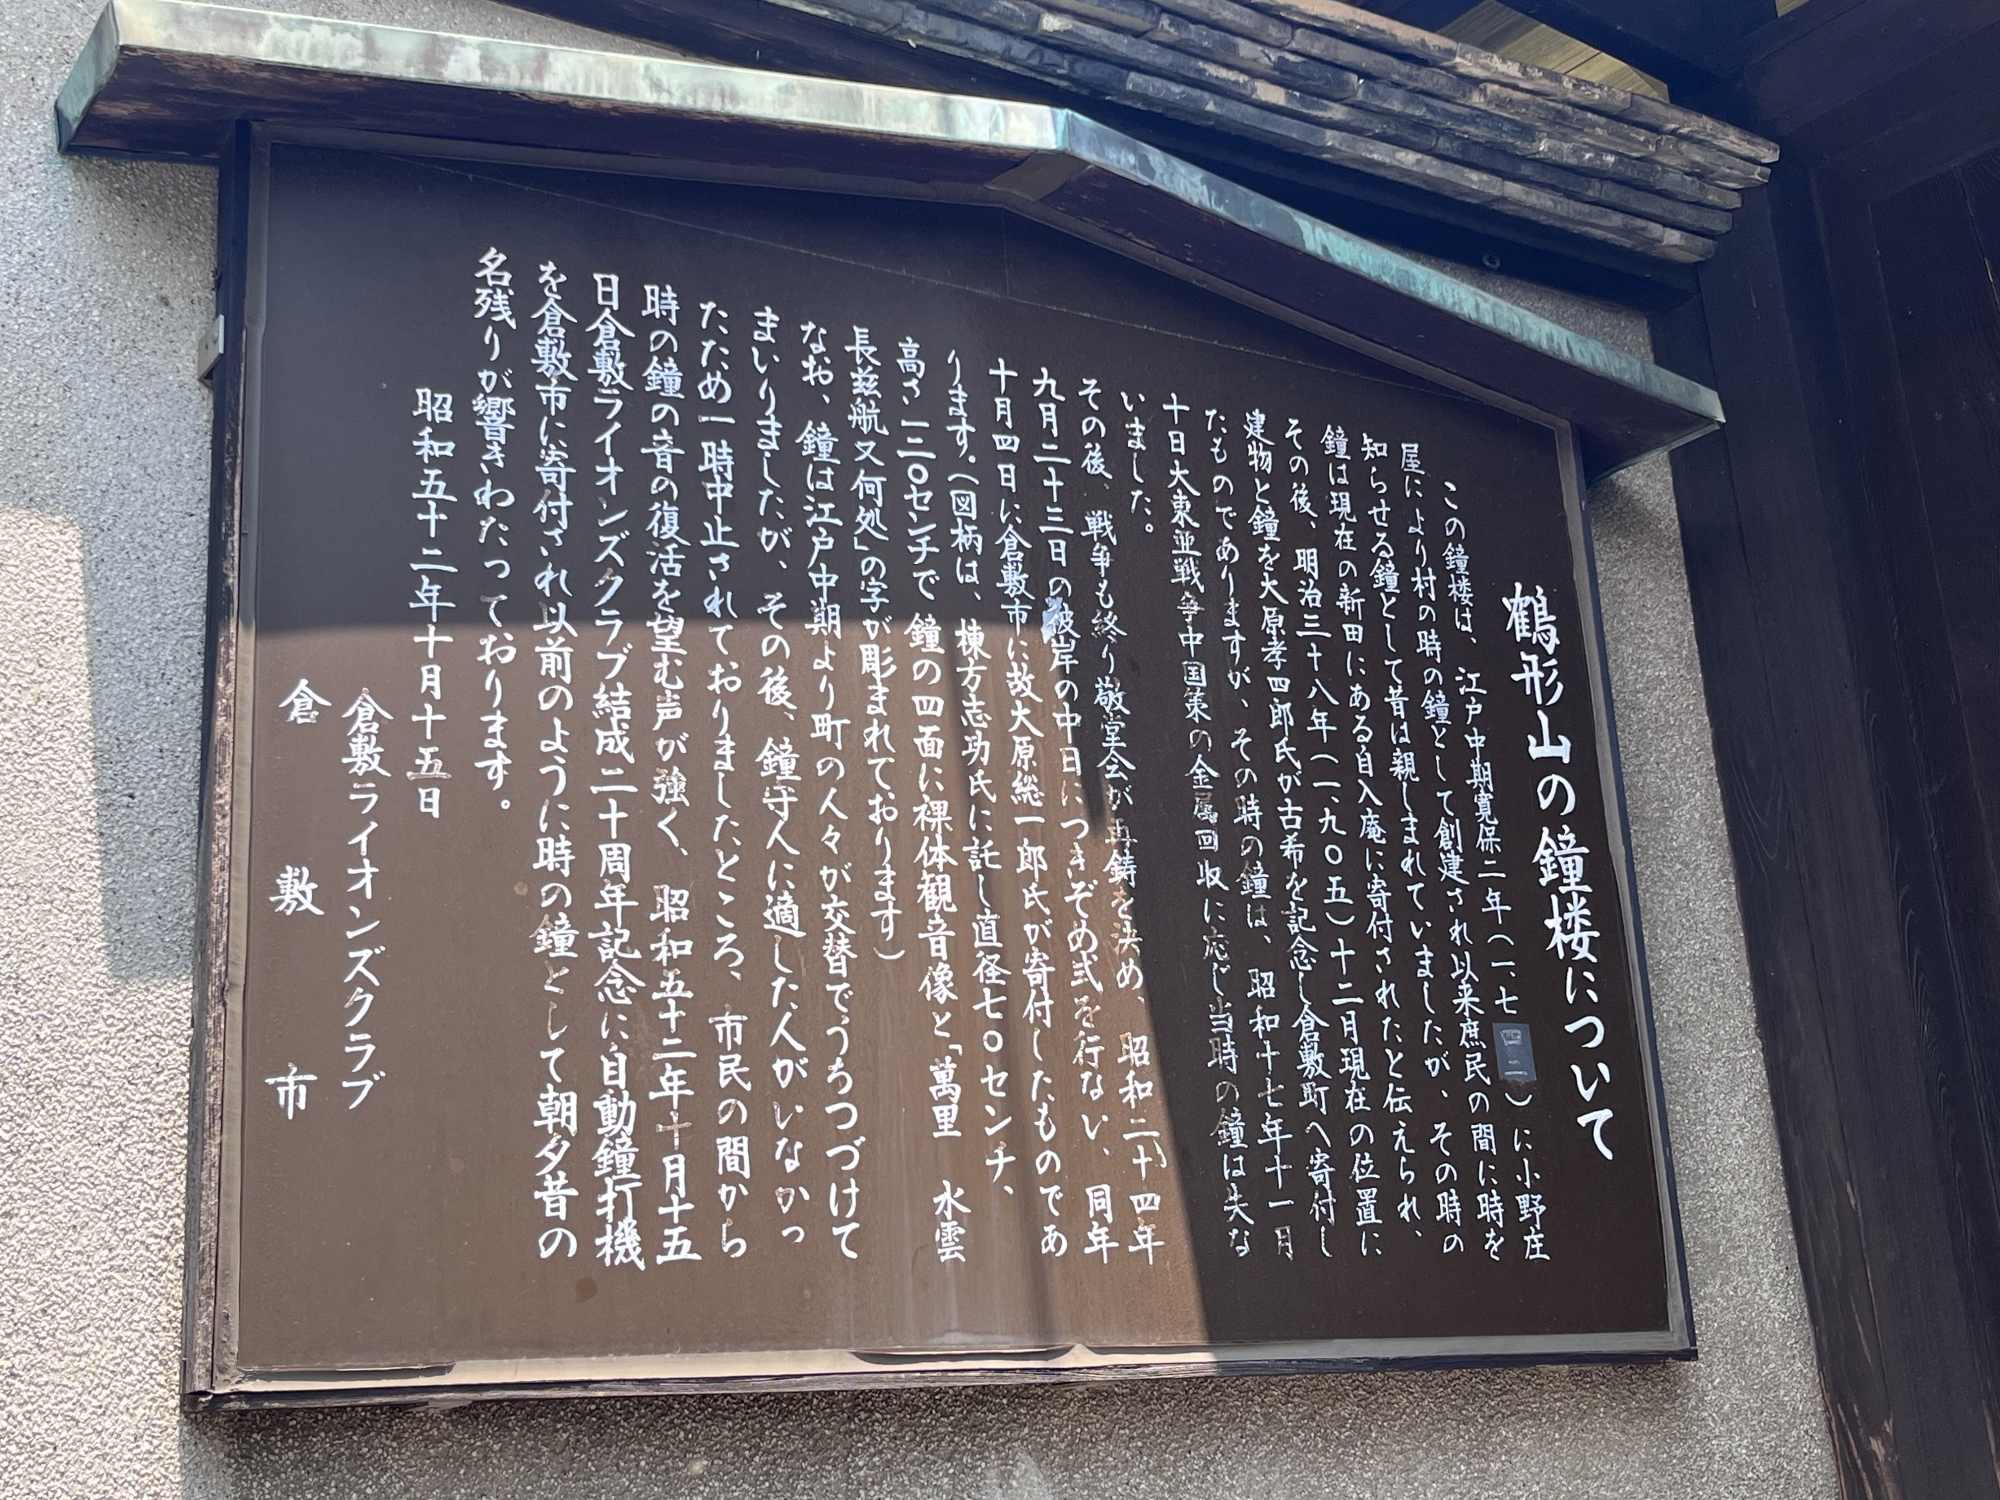 鶴形山の鐘楼について
この鐘楼は、江戸中期寛保二年(一、七四二)に小野庄
屋により村の時の鐘として創建され以来庶民の間に時を
知らせる鐘として昔は親しまれていましたが、その時の
鐘は現在の新田にある自入庵に寄付されたと伝えられ、
その後、明治三十八年(一、九〇五)十二月現在の位置に
建物と鐘を大原孝四郎氏が古希を記念し倉敷町へ寄付し
たものでありますが、その時の鐘は、昭和十七年十一月
十日大東亜戦争中国策の金属回収に応じ当時の鐘は失な
いました。
その後、戦争も終り敬堂会が再鋳を決め、昭和二十四年
九月二十三日の彼岸の中日につきぞめ式を行ない、同年
十月四日に倉敷市に故大原総一郎氏が寄付したものであ
ります。(図柄は、棟方志功氏に託し直径七〇センチ、
高さ一二〇センチで鐘の四面に裸体観音像と「萬里 水雲
長茲航又何処」の字が彫まれております)
なお、鐘は江戸中期より町の人々が交替でうちつづけて
まいりましたが、その後、鐘守人に適した人がいなかっ
たため一時中止されておりましたところ、市民の間から
時の鐘の音の復活を望む声が強く、昭和五十二年十月十五
日倉敷ライオンズクラブ結成二十周年記念に自動鐘打機
を倉敷市に寄付され以前のように時の鐘として朝夕昔の
名残りが響きわたっております。
昭和五十二年十月十五日
倉敷ライオンズクラブ
倉敷市